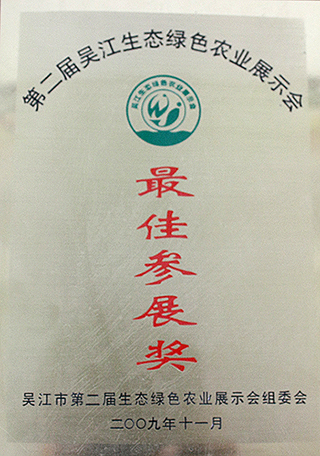 第二届吴江生态绿色农业展示会
吴江生态绿色农业展示会
最佳参展奖
吴江市第二届生态绿色农业展示会组委会
二〇〇九年十一月